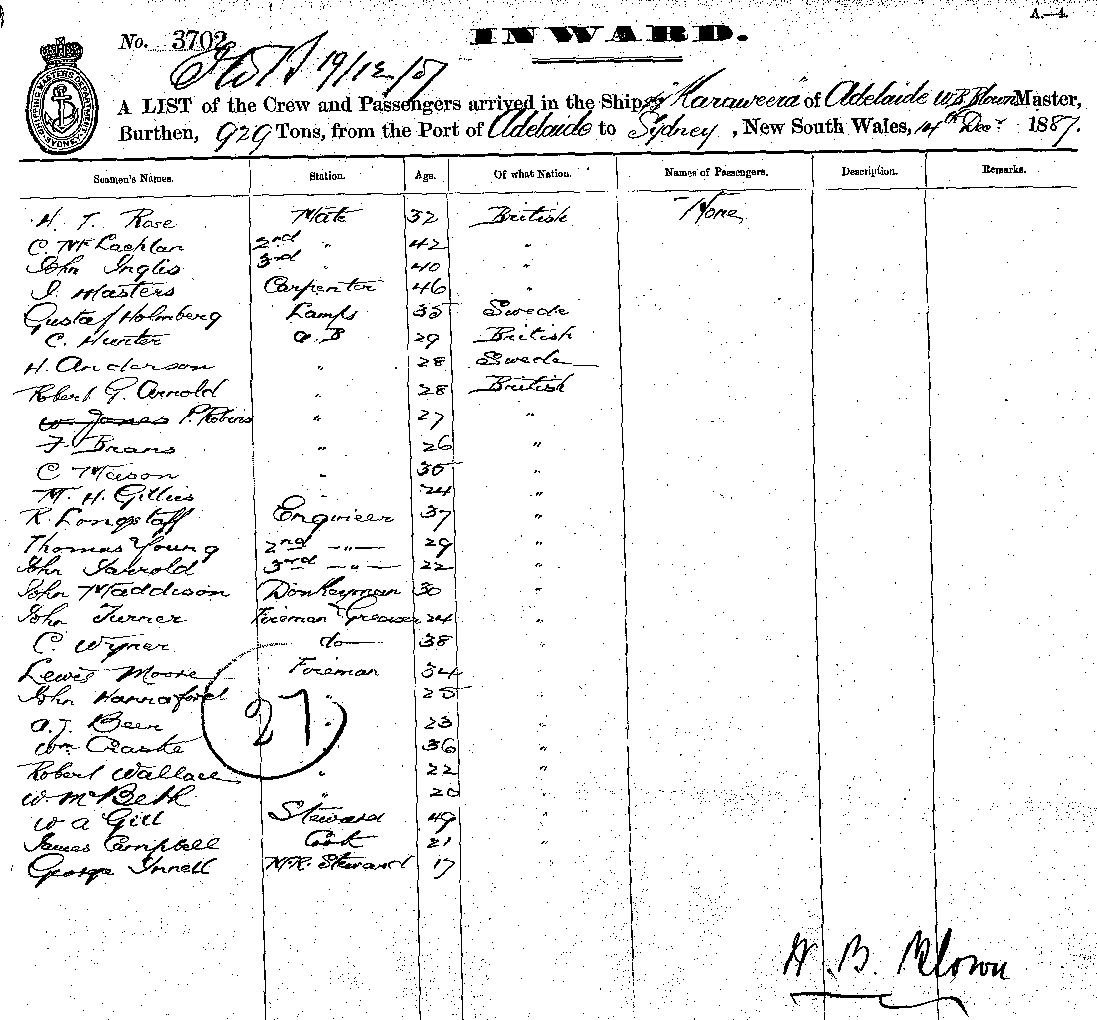 A.—4.
No. 3702
INWARD.
19/12/87
SHIPPING MASTERS DEPARTMENT SYDNEY
A LIST of the Crew and Passengers arrived in the Ship Kanaweera of Adelaide W.B. Blown Master,
Burthen, 929 Tons, from the Port of Adelaide to Sydney, New South Wales, 14th Decr 1887.
Seamen's Names. Station. Age. Of what Nation. Names of Passengers. Description. Remarks.
H. T. Rose Mate 32 British None
C. McLachlan 2nd " 42 "
John Inglis 3rd " 40 "
J. Masters Carpenter 46 "
Gustaf Holmberg Lamps 35 Swede
C. Hunter A.B 29 British
H. Anderson " 28 Swede
Robert G. Arnold " 28 British
W. Jones P. Robins " 27 "
F. Brans " 26 "
C Meison " 35 "
M. H. Gillies " 24 "
R. Longstaff Engineer 37 "
Thomas Young 2nd —"— 29 "
John Jarrold 3rd —"— 22 "
John Maddison Donkeyman 30 "
John Turner Fireman & Greaser 24 "
C. Wyner do 38 "
Lewis Moore Fireman 34 "
John Hannaford " 25 "
A. J. Beer " 23 "
Wm Clarke " 36 "
Robert Wallace " 22 "
W. McBeth " 20 "
W A Gill Steward 49 "
James Campbell Cook 21 "
George Innell M.R. Steward 17
27
W. B. Blown